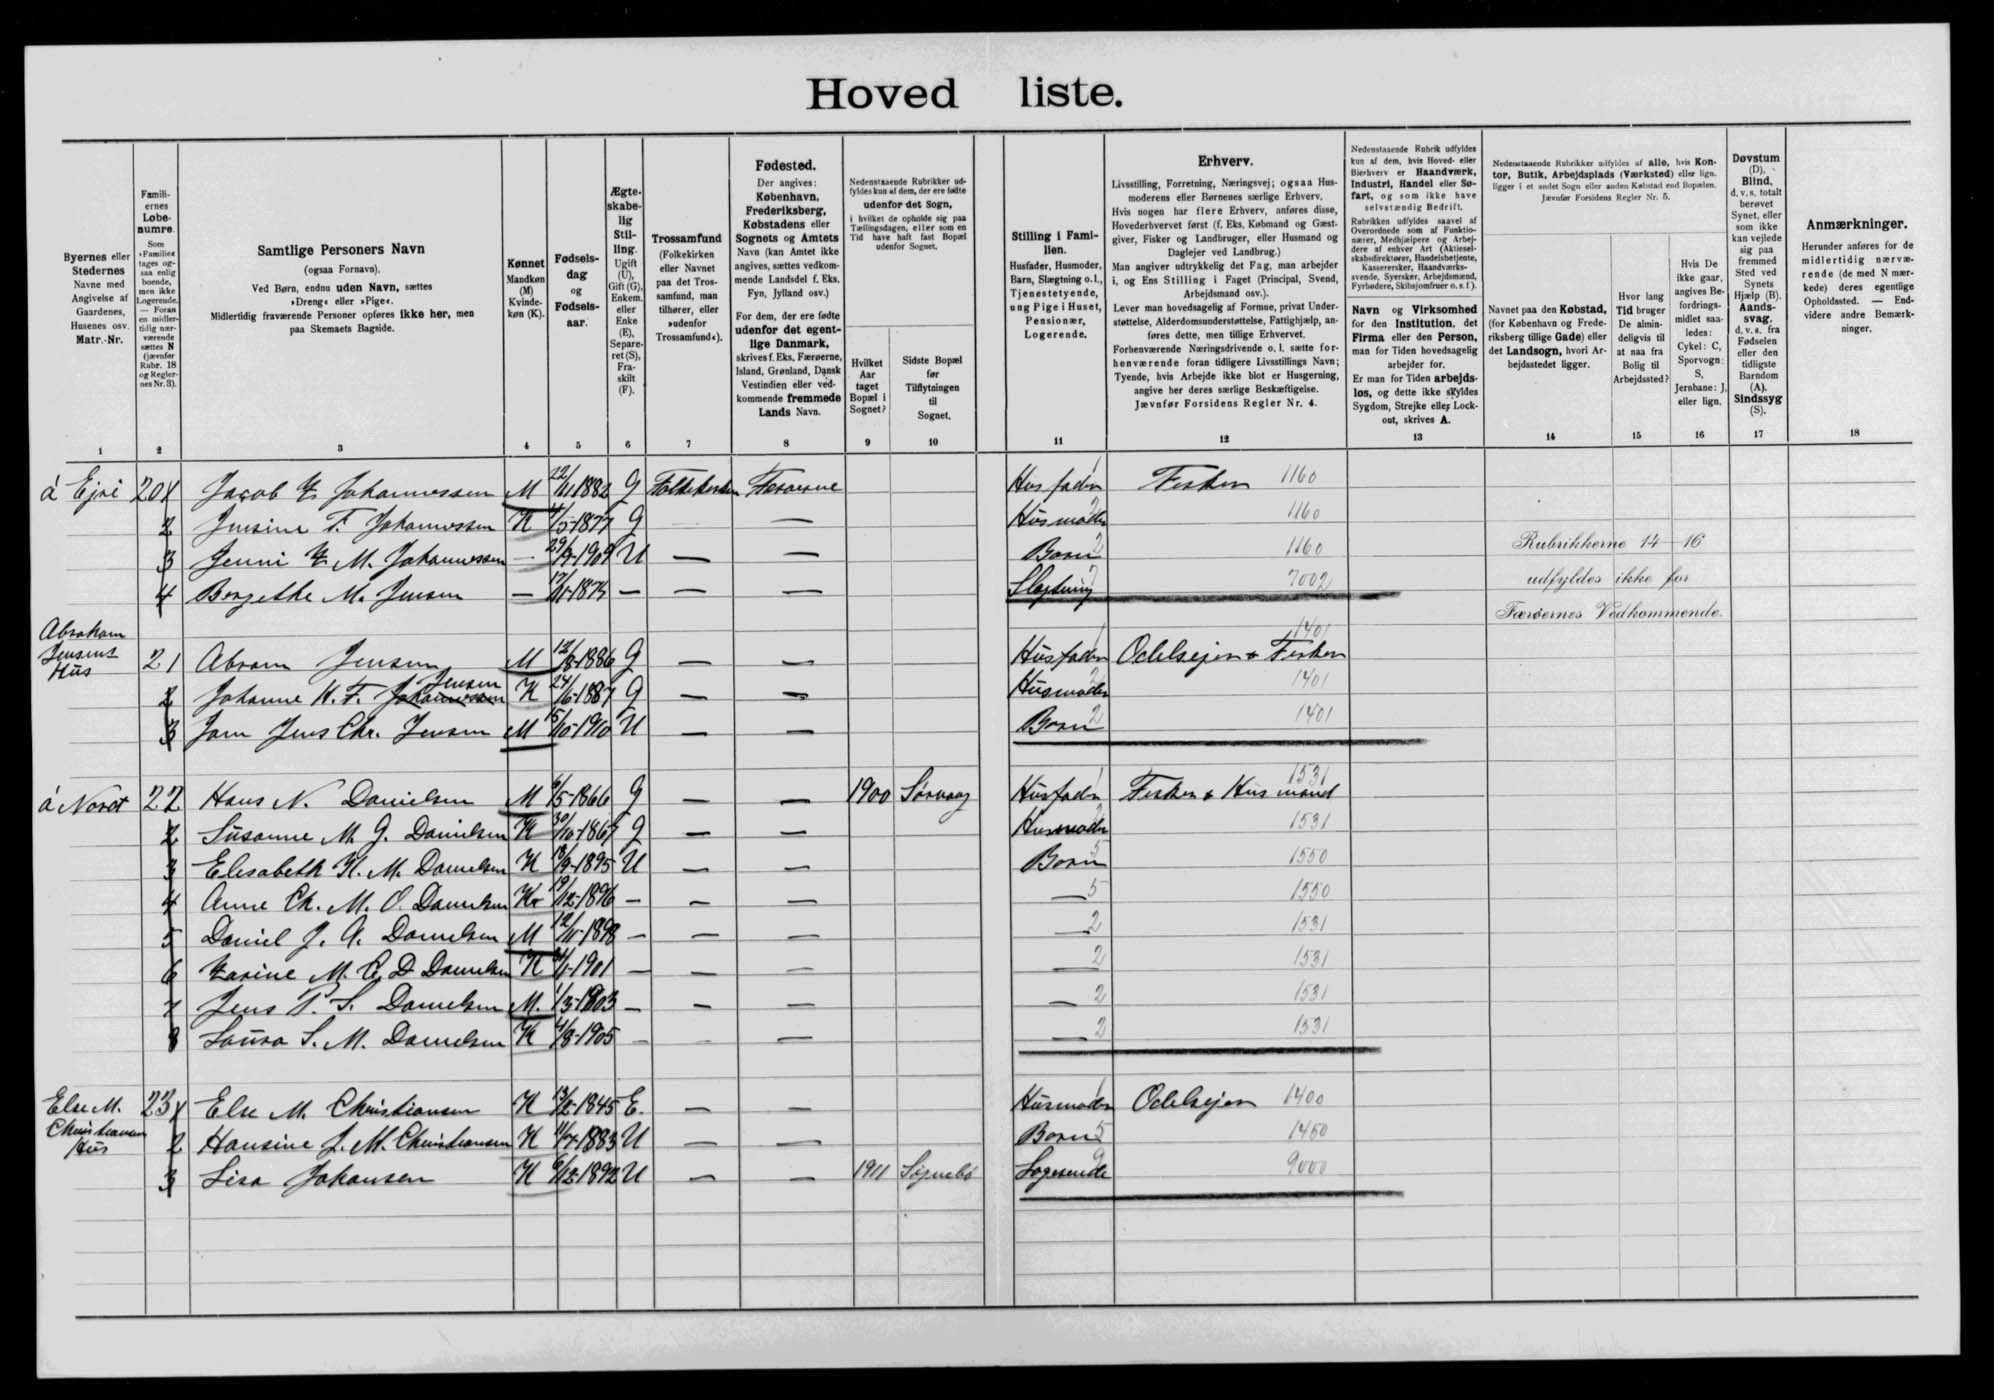 Hoved liste.
Byernes eller Stedernes Navne med Angivelse af Gaardenes, Husenes osv. Matr.-Nr.
Familiernes Løbenumre.
Som »Familie« tages ogsaa enlig boende, men ikke Logerende. — Foran en midlertidig nærværende sættes N (jævnfør Rubr. 18 og Reglernes Nr. 3).
Samtlige Personers Navn
(ogsaa Fornavn).
Ved Børn, endnu uden Navn, sættes »Dreng« eller »Pige«.
Midlertidig fraværende Personer opføres ikke her, men paa Skemaets Bagside.
Kønnet
Mandkøn (M)
Kvindekøn (K).
Fødselsdag og Fødselsaar.
Ægteskabelig Stilling.
Ugift (U), Gift (G), Enkem. eller Enke (E), Separeret (S), Fraskilt (F).
Trossamfund
(Folkekirken eller Navnet paa det Trossamfund, man tilhører, eller »udenfor Trossamfund«).
Fødested.
Der angives: København, Frederiksberg, Købstadens eller Sognets og Amtets Navn (kan Amtet ikke angives, sættes vedkommende Landsdel f. Eks. Fyn, Jylland osv.)
For dem, der ere fødte udenfor det egentlige Danmark, skrives f. Eks. Færøerne, Island, Grønland, Dansk Vestindien eller vedkommende fremmede Lands Navn.
Nedenstaaende Rubrikker udfyldes kun af dem, der ere fødte udenfor det Sogn, i hvilket de opholde sig paa Tællingsdagen, eller som en Tid have haft fast Bopæl udenfor Sognet.
Hvilket Aar taget Bopæl i Sognet?
Sidste Bopæl før Tilflytningen til Sognet.
Stilling i Familien.
Husfader, Husmoder, Barn, Slægtning o.l., Tjenestetyende, ung Pige i Huset, Pensionær, Logerende.
Erhverv.
Livsstilling, Forretning, Næringsvej; ogsaa Husmoderens eller Børnenes særlige Erhverv.
Hvis nogen har flere Erhverv, anføres disse, Hovederhvervet først (f. Eks. Købmand og Gæstgiver, Fisker og Landbruger, eller Husmand og Daglejer ved Landbrug.)
Man angiver udtrykkelig det Fag, man arbejder i, og Ens Stilling i Faget (Principal, Svend, Arbejdsmand osv.).
Lever man hovedsagelig af Formue, privat Understøttelse, Alderdomsunderstøttelse, Fattighjælp, anføres dette, men tillige Erhvervet.
Forhenværende Næringsdrivende o. l. sætte forhenværende foran tidligere Livsstillings Navn; Tyende, hvis Arbejde ikke blot er Husgerning, angive her deres særlige Beskæftigelse.
Jævnfør Forsidens Regler Nr. 4.
Nedenstaaende Rubrik udfyldes kun af dem, hvis Hoved- eller Bierhverv er Haandværk, Industri, Handel eller Søfart, og som ikke have selvstændig Bedrift.
Rubrikken udfyldes saavel af Overordnede som af Funktionærer, Medhjælpere og Arbejdere af enhver Art (Aktieselskabsdirektører, Handelsbetjente, Kasserersker, Haandværkssvende, Syersker, Arbejdsmænd, Fyrbødere, Skibsjomfruer o. s. f.).
Navn og Virksomhed for den Institution, det Firma eller den Person, man for Tiden hovedsagelig arbejder for.
Er man for Tiden arbejdsløs, og dette ikke skyldes Sygdom, Strejke eller Lockout, skrives A.
Nedenstaaende Rubrikker udfyldes af alle, hvis Kontor, Butik, Arbejdsplads (Værksted) eller lign. ligger i et andet Sogn eller anden Købstad end Bopælen.
Jævnfør Forsidens Regler Nr. 5.
Navnet paa den Købstad, (for København og Frederiksberg tillige Gade) eller det Landsogn, hvori Arbejdsstedet ligger.
Hvor lang Tid bruger De almindeligvis til at naa fra Bolig til Arbejdssted?
Hvis De ikke gaar, angives Befordringsmidlet saaledes: Cykel: C, Sporvogn: S, Jernbane: J, eller lign.
Døvstum (D), Blind, d. v. s. totalt berøvet Synet, eller som ikke kan vejlede sig paa fremmed Sted ved Synets Hjælp (B). Aandssvag. d. v. s. fra Fødselen eller den tidligste Barndom (A). Sindssyg (S).
Anmærkninger.
Herunder anføres for de midlertidig nærværende (de med N mærkede) deres egentlige Opholdssted. — Endvidere andre Bemærkninger.
1 2 3 4 5 6 7 8 9 10 11 12 13 14 15 16 17 18
á Ejri 20 1 Jacob Johannessen M 22/11 1882 G Folkekirken Færøerne Husfader 1 Fisker 1160
2 Jensine F. Johannessen K 4/5-1877 G — Husmoder 2 1160
3 Jenni M. Johannessen — 1909 U — — Barn 2 1160
4 Borgethe M. Jensen — — — — Slægtning 7 7002
Rubrikkerne 14-16
udfyldes ikke for
Færøernes Vedkommende.
Abraham Jensens Hus 21 1 Abram Jensen M 12/8-1886 G — — Husfader 1 Odelsejer & Fisker 1401
2 Johanne K. F. Jensen K 24/6-1887 G — — Husmoder 2 1401
3 Jens Chr. Jensen M 15/10-1910 U — — Barn 2 1401
á 22 Hans N. Danielsen M 6/5-1866 G — — 1900 Sørvaag Husfader 1 Fisker & Husmand 1531
2 Susanne M. J. Danielsen K 30/10-1867 G — — Husmoder 2 1531
3 Elisabeth K. M. Danielsen K 18/9-1895 U — — Barn 5 1550
4 Anne Ch. M. O. Danielsen K 19/12-1896 — — — — 5 1550
5 Daniel J. A. Danielsen M 12/11-1898 — — — — 2 1531
6 M. C. D. Danielsen K 1901 — — — — 2 1531
7 Jens P. S. Danielsen M. 1/3-1903 — — — — 2 1531
8 Laura S. M. Danielsen K 4/8-1905 — — — — 2 1531
Else M. Christiansens Hus 23 1 Else M. Christiansen K 1845 E. — — Husmoder 1 Odelsejer 1400
2 Hansine J. M. Christiansen K 11/7-1883 U — — Barn 5 1450
3 Lisa Johansen K 6/12-1892 U — — 1911 Signebø Logerende 9 9000